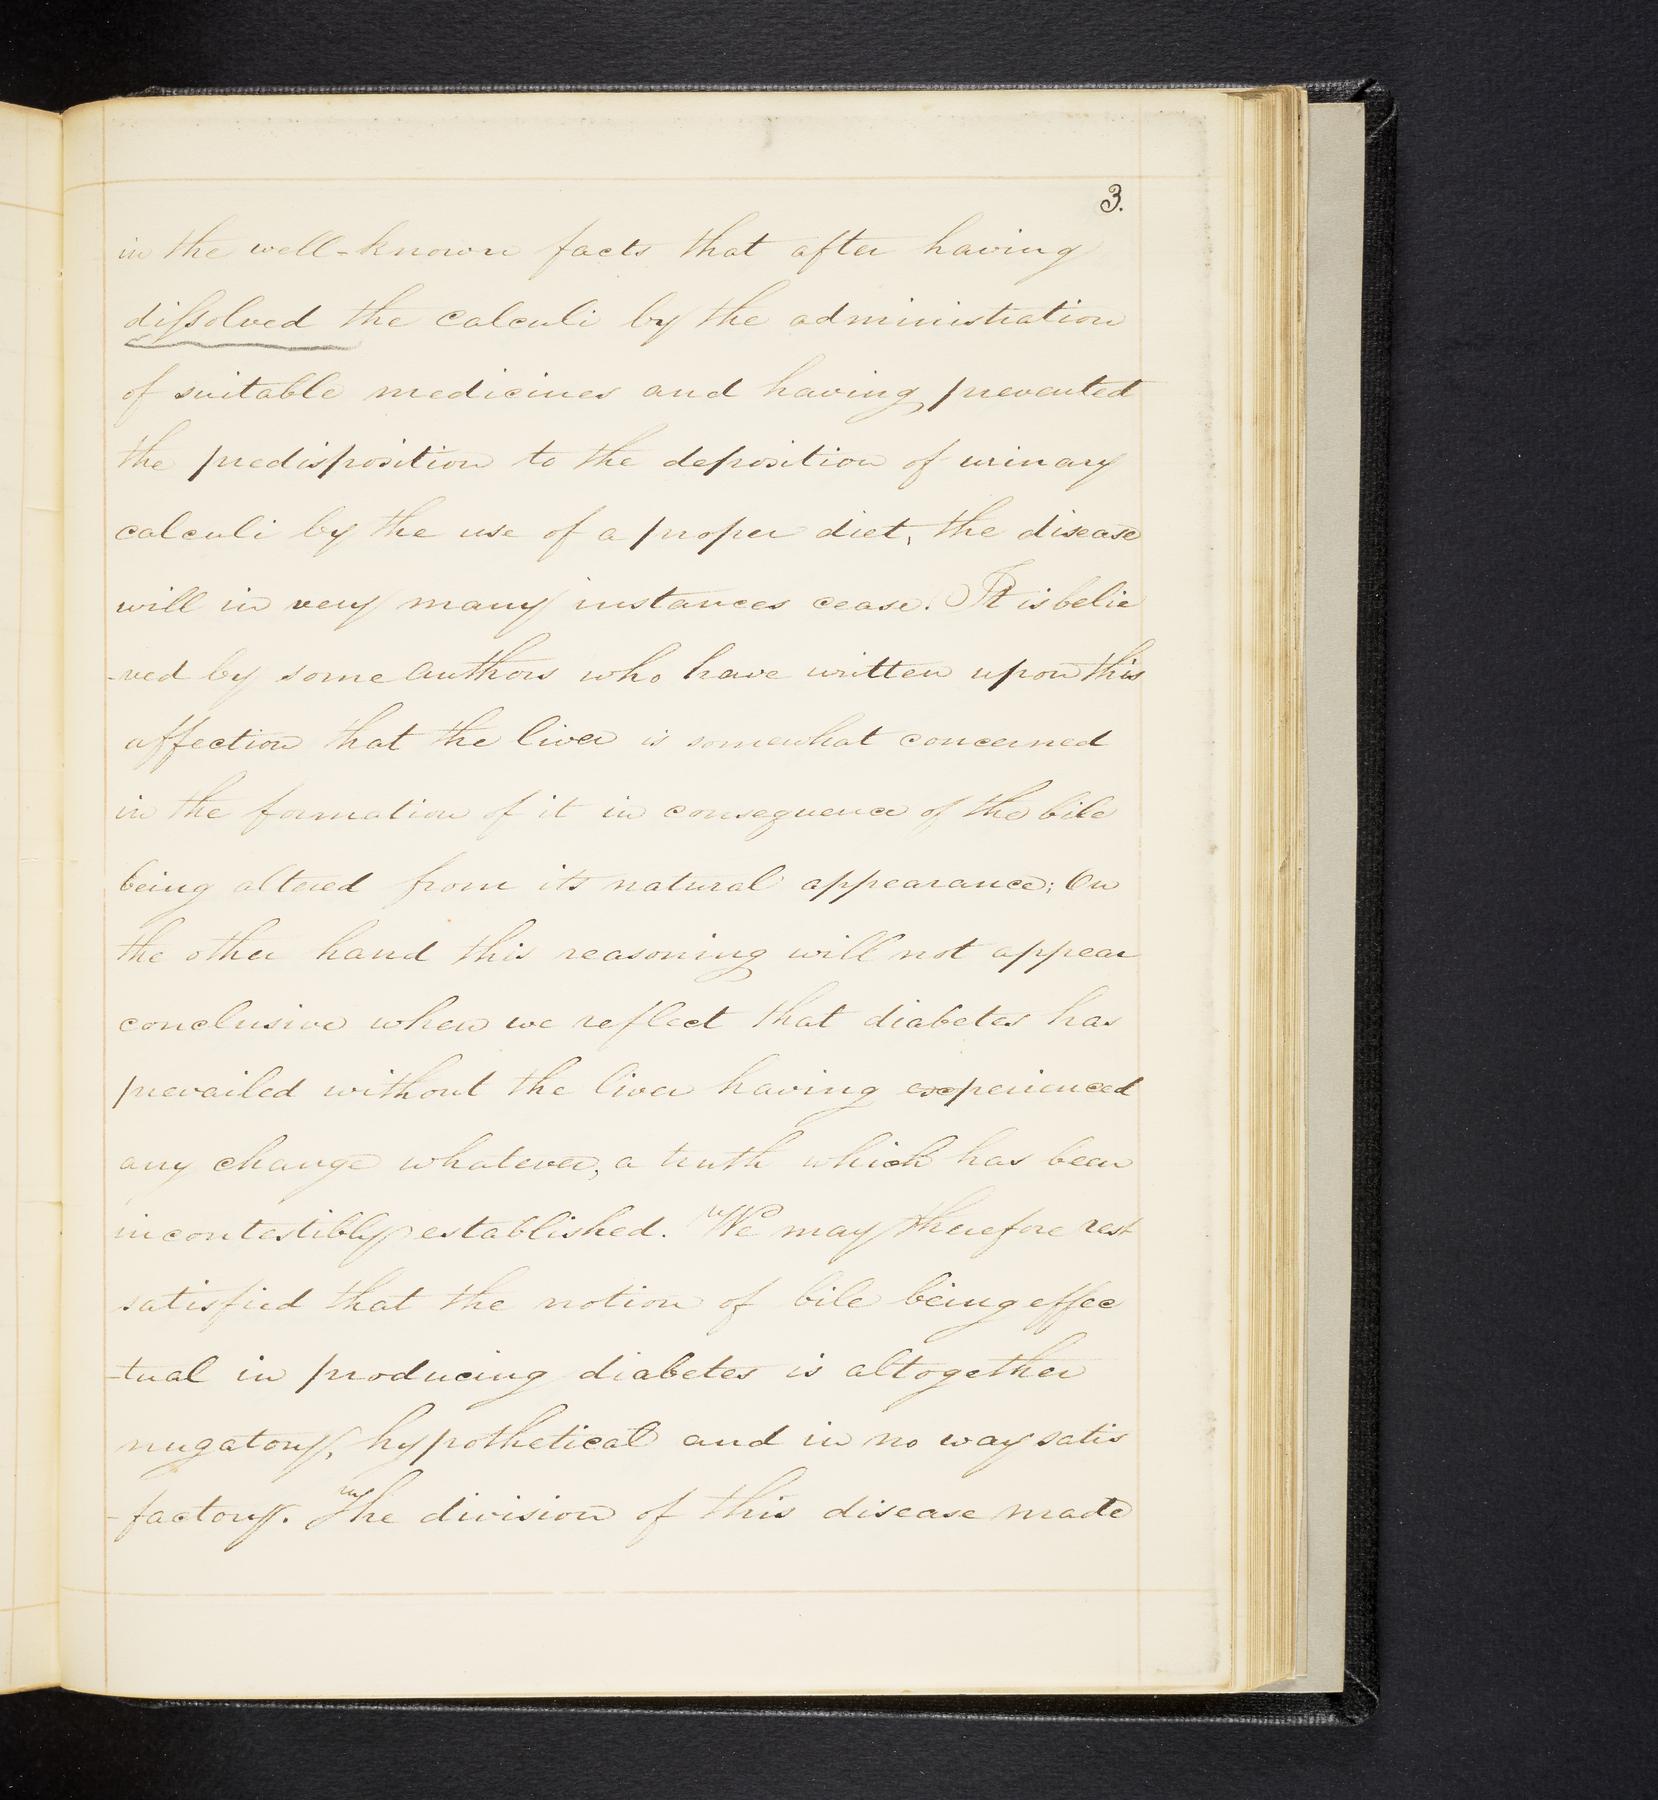 3.
in the well-known facts that after having
dissolved the calculi by the administration
of suitable medicines and having prevented
the predisposition to the deposition of urinary
calculi by the use of a proper diet, the disease
will in very many instances cease. It is belie
-ved by some authors who have written upon this
affection that the liver is somewhat concerned
in the formation of it in consequence of the bile
being altered from its natural appearance; On
the other hand this reasoning will not appear
conclusive when we reflect that diabetes has
prevailed without the liver having experienced
any change whatever, a truth which has been
incontestibly established. We may therefore rest
satisfied that the notion of bile being effec
-tual in producing diabetes is altogether
nugatory, hypothetical and in no way satis
-factory. The division of this disease made